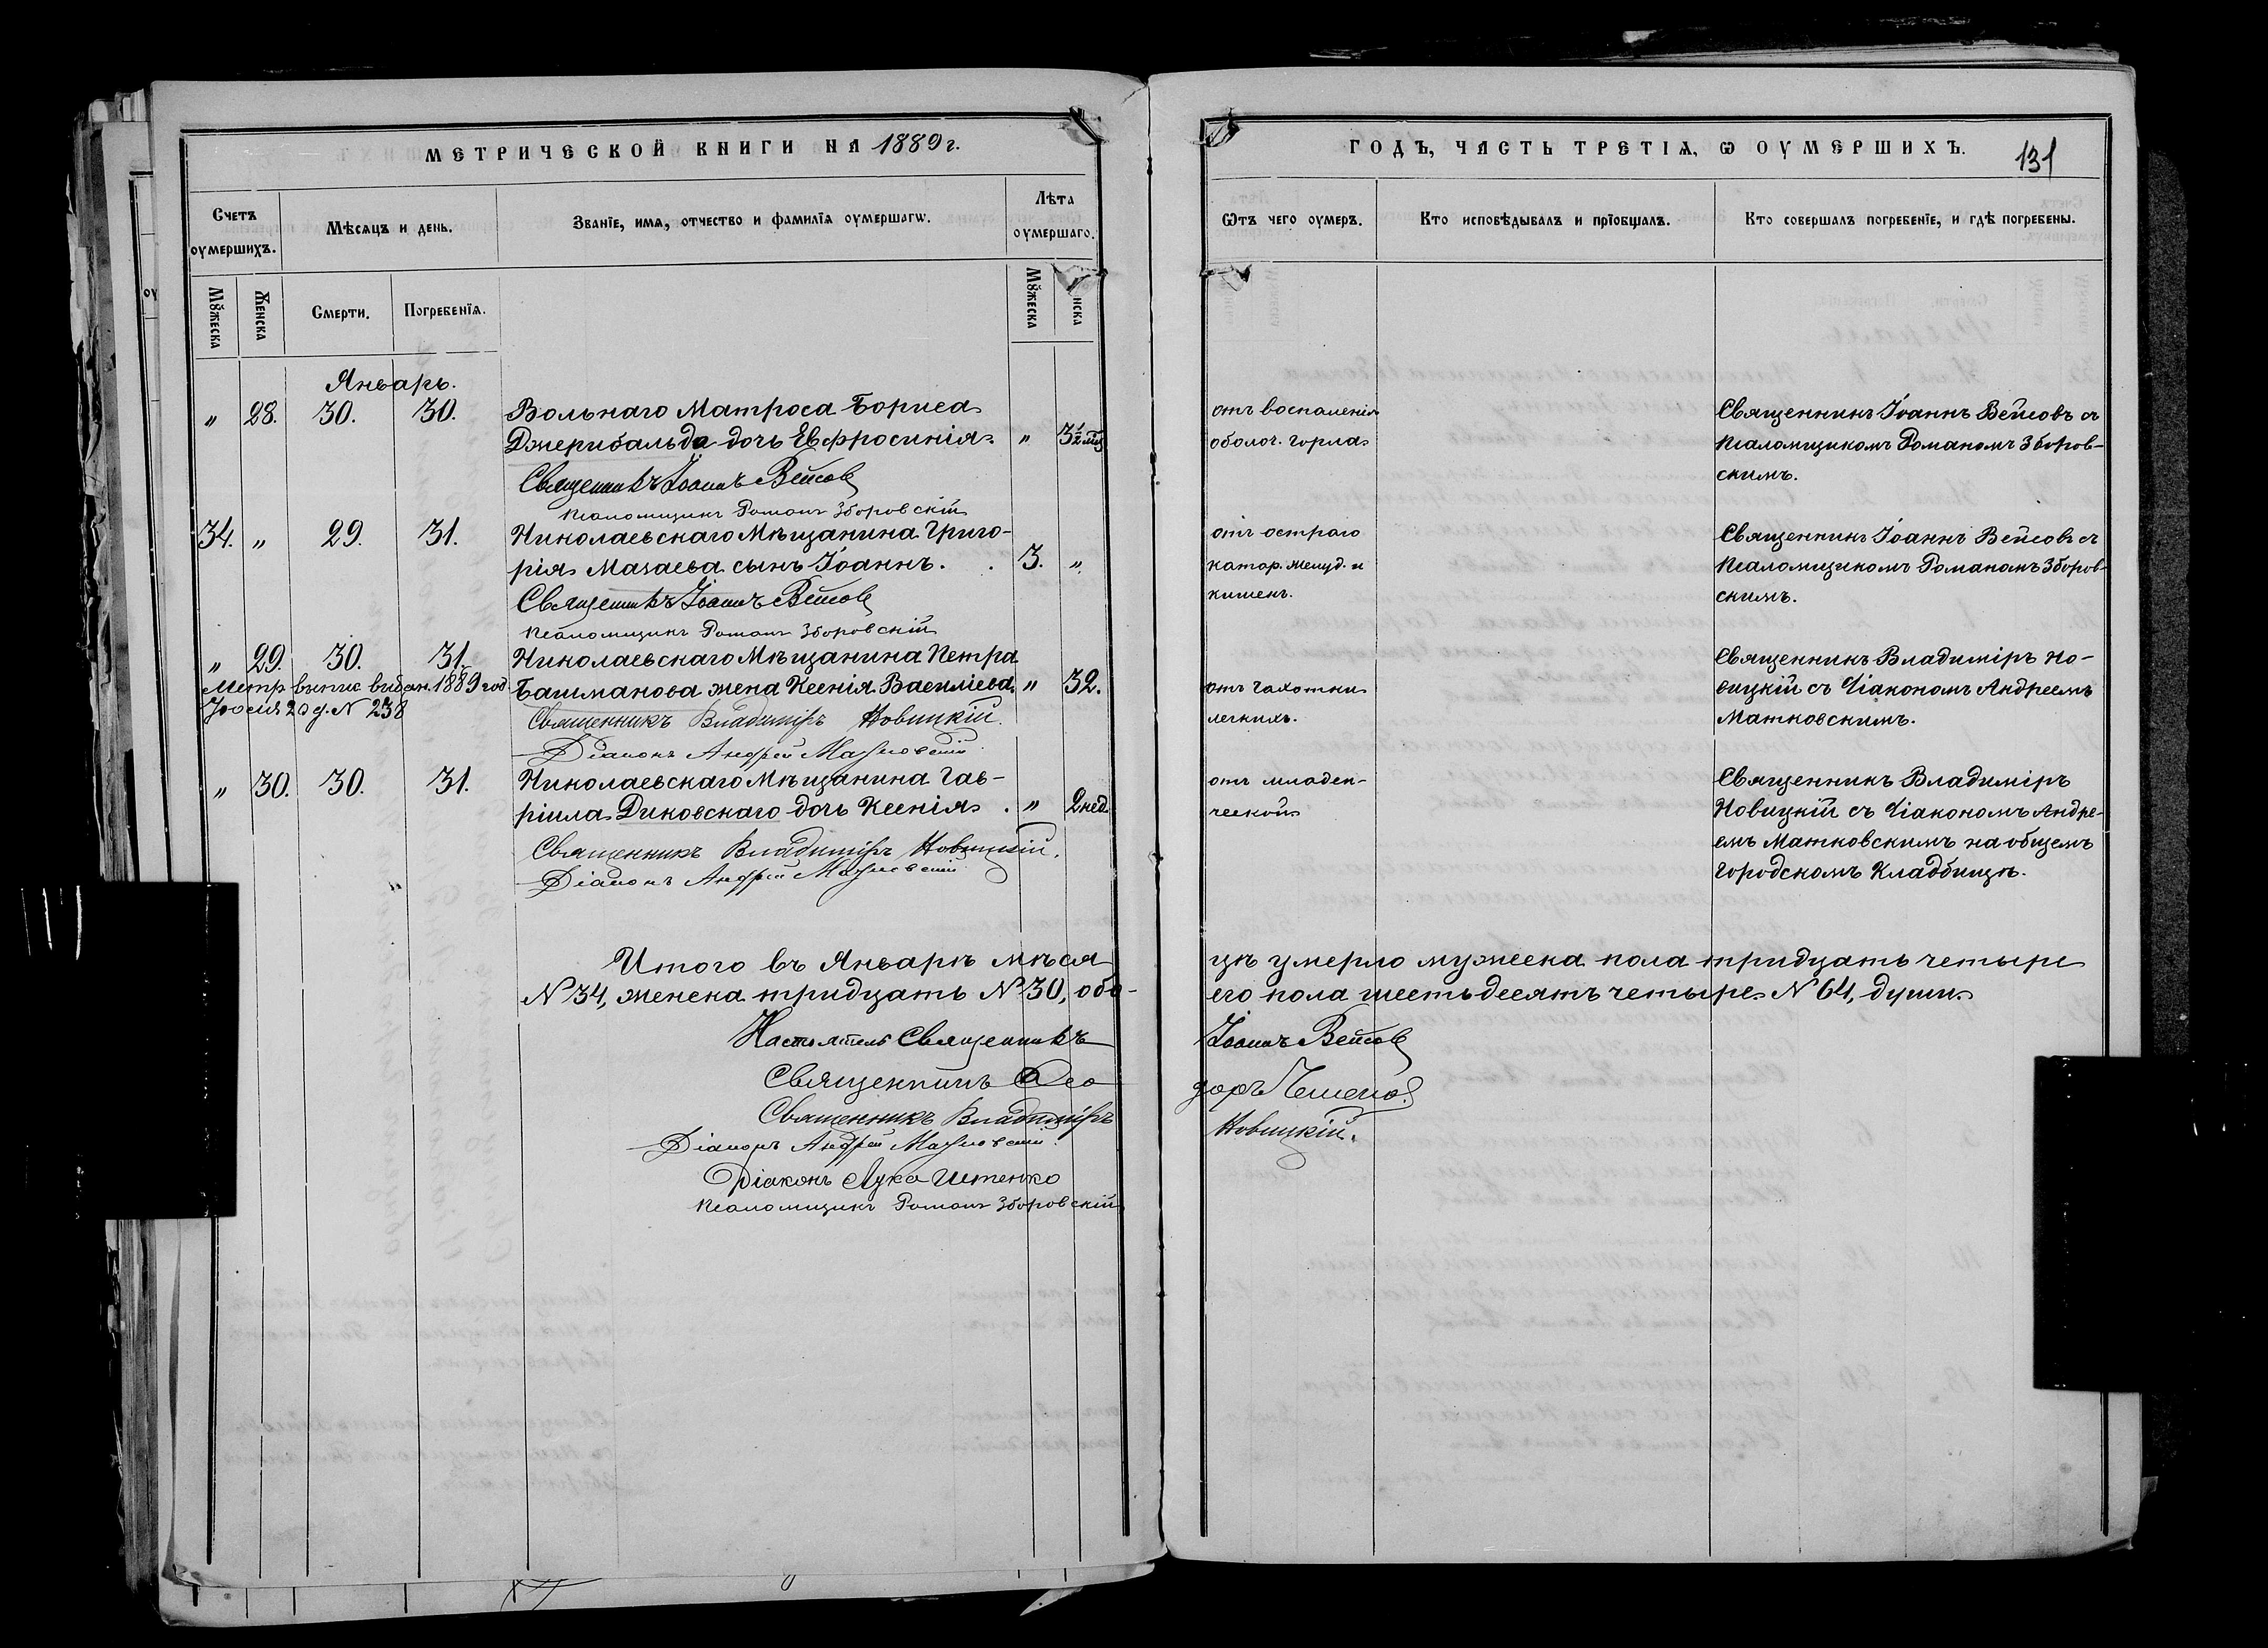 МЕТРИЧЕСКОЙ КНИГИ НА 1889 г.
Счетъ оумершихъ.
Мѣсяцъ и день.
Званїе, имя, отчество и фамилїя оумершагѡ.
Лѣта оумершаго.
Мꙋжеска
Женска
Смерти.
Погребенїя.
Мꙋжеска
нска
Январь.
„ 28. 30. 30. Вольнаго Матроса Бориса
Джерибальда дочь Евфросинія. „ 3½ мѣ
Священникъ Іоаннъ Вейсов
Псаломщикъ Романъ Зборовскій
34. „ 29. 31. Николаевскаго Мѣщанина Григо-
рія Мазаева сынъ Іоаннъ. . 3. „
Священникъ Іоаннъ Вейсов
Псаломщикъ Романъ Зборовскій
„ 29. 30. 31. Николаевскаго Мѣщанина Петра
Метр. выпис выдан. 1889 год.
Башманова жена Ксенія Васильева „ 32.
20 д. N 238
Священникъ Владиміръ Новицкій.
Діаконъ Андрей Матковскій
„ 30. 30. 31. Николаевскаго Мѣщанина Гав-
ріила Диковскаго дочь Ксенія. „ 2 нед.
Священникъ Владиміръ Новицкій.
Діаконъ Андрей Матковскій
Итого въ Январѣ мѣся
N 34, женска тридцать N 30, обо-
Настоятель Священникъ
Священникъ Ѳео
Священникъ Владиміръ
Діаконъ Андрей Матковскій.
Діаконъ Лука Иетенко
Псаломщикъ Романъ Зборовскій
ГОДЪ, ЧАСТЬ ТРЕТІѦ, Ѡ ОУМЕРШИХЪ.
131
Ѿтъ чего оумеръ.
Кто исповѣдывалъ и прїобщалъ.
Кто совершалъ погребенїе, и гдѣ погребены.
отъ воспаленія
оболоч. горла
Священникъ Іоаннъ Вейсовъ съ
Псаломщикомъ Романомъ Зборов-
скимъ.
отъ остраго
катар. желуд. и
кишекъ.
Священникъ Іоаннъ Вейсовъ съ
Псаломщикомъ Романомъ Зборов-
скимъ.
отъ чахотки
легкихъ.
Священникъ Владиміръ Но-
вицкій съ Діакономъ Андреемъ
Матковскимъ.
отъ младен-
ческой
Священникъ Владиміръ
Новицкій съ Діакономъ Андре-
емъ Матковскимъ на общемъ
городскомъ Кладбищѣ.
цѣ умерло мужеска пола тридцать четыре
его пола шестьдесятъ четыре N 64, души
Іоаннъ Вейсов
доръ
Новицкій.